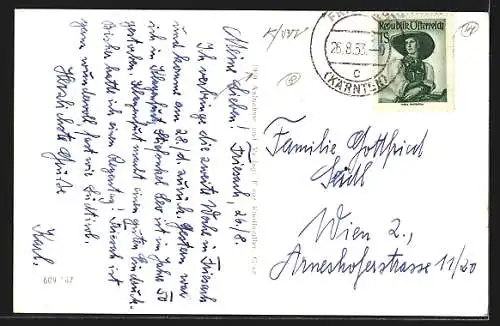 Meine Lieben! Friesach, 26/8.
Ich verbringe die zweite Woche in Friesach
und komme am 28./d. zurück. Gestern war
ich in Klagenfurt, der ist im Jahre 50
gestorben. Klagenfurt macht einen guten Eindruck.
Bisher hatte ich einen Regentag! Friesach ist
ganz wundervoll, fast wie Südtirol.
Herzlichste Grüße
Karl.
FRIESACH
26.8.53.
c
(KÄRNTEN)
Republik Österreich
1S
Familie Gottfried
Seidl
Wien 2.,
Arneshoferstrasse 11/20